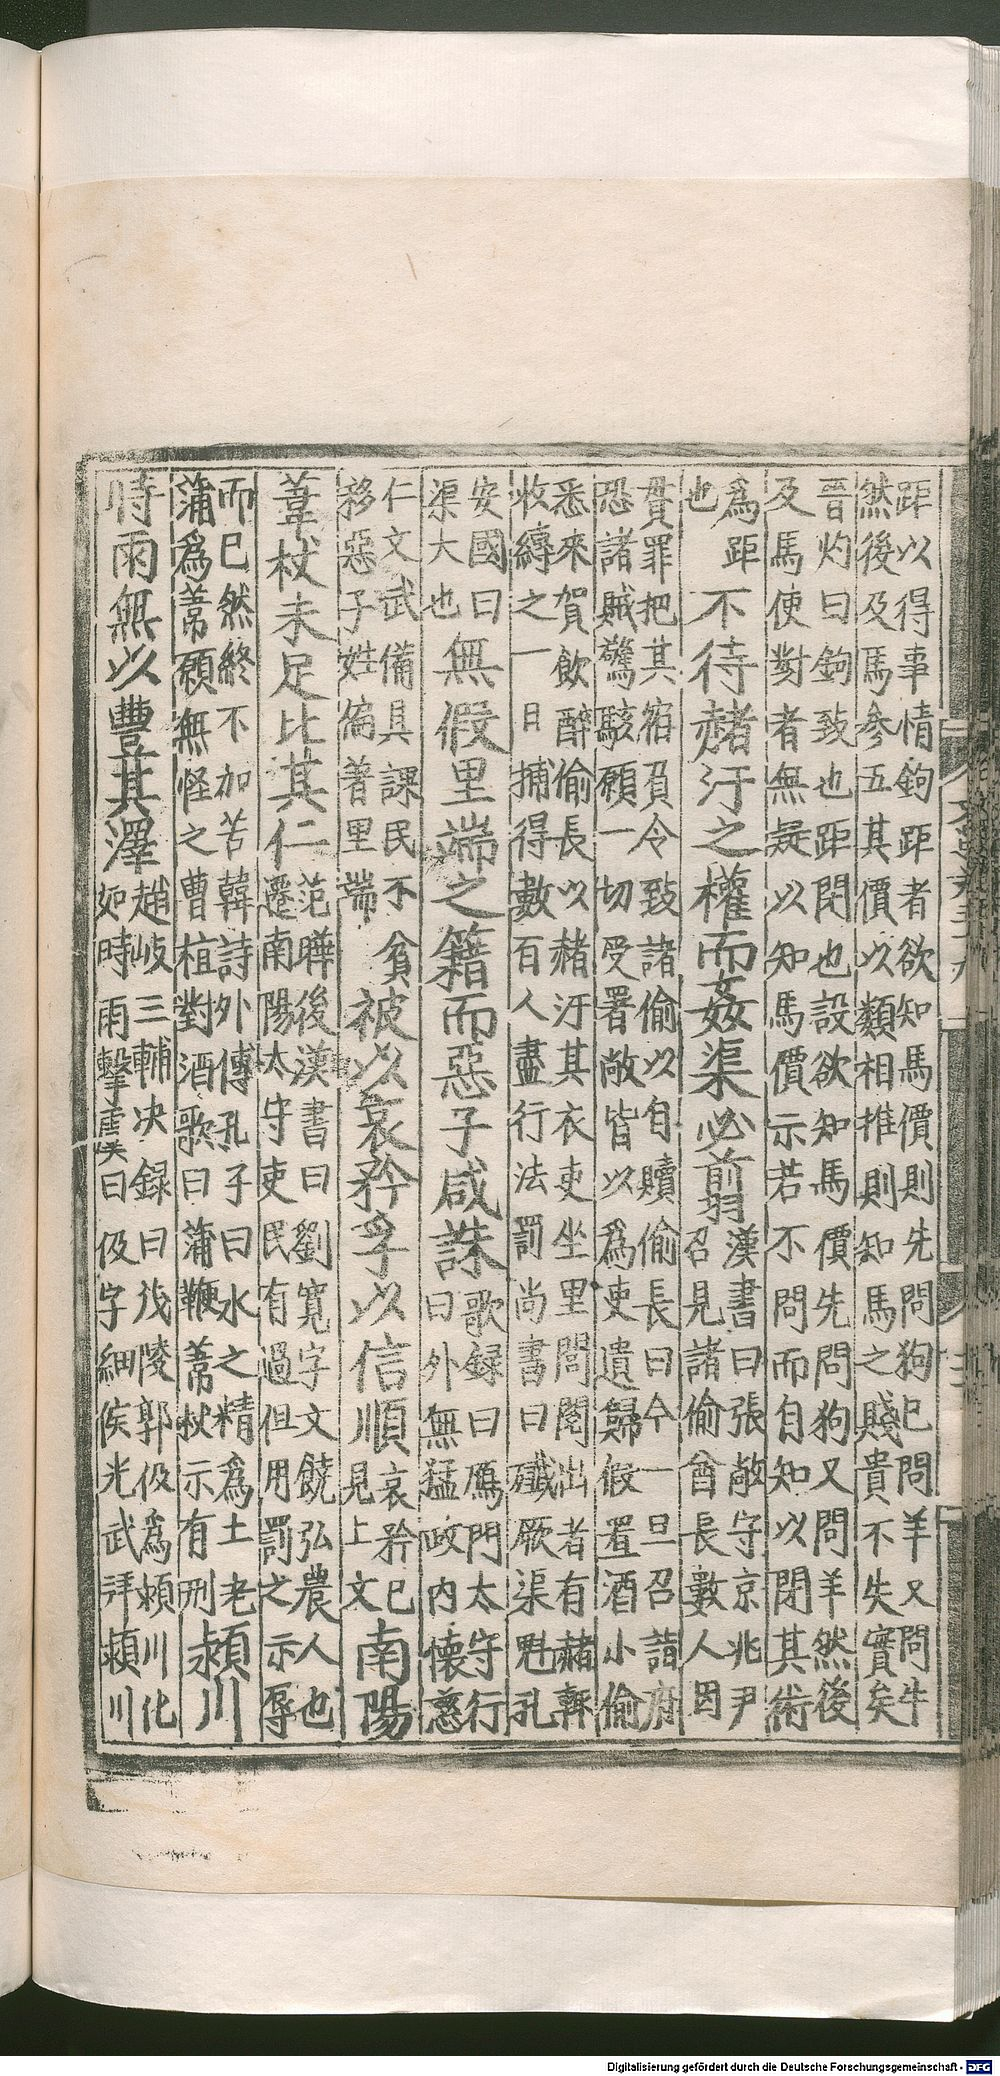 距以得事情鉤距者欲知馬價則先問狗已問羊又問牛
然後及馬參五其價以類相推則知馬之賤貴不失實矣
晉灼曰鉤致也距閉也設欲知馬價先問狗又問羊然後
及馬使對者無疑以知馬價示若不問而自知以閉其術
為距
也
不待赭汙之權而姦渠必翦
漢書曰張敞守京兆尹
召見諸偷酋長數人因
貰罪把其宿負令致諸偷以自贖偷長曰今一旦召詣府
恐諸賊驚駭願一切受署敞皆以為吏遣歸假置酒小偷
悉來賀飲醉偷長以赭汙其衣吏坐里閭閱出者有赭輒
收縛之一日捕得數百人盡行法罰尚書曰殲厥渠魁孔
安國曰
渠大也
無假里端之籍而惡子咸誅
歌録曰鴈門太守行
曰外無猛政內懷慈
仁文武備具課民不貧
移惡子姓偏著里端
被以哀矜孚以信順
哀矜已
見上文
南陽
葦杖未足比其仁
范曄後漢書曰劉寬字文饒弘農人也
遷南陽太守吏民有過但用罰之示辱
而已然終不加苦韓詩外傳孔子曰水之精為土老
蒲為葦願無怪之曹植對酒歌曰蒲鞭葦杖示有刑
潁川
時雨無以豐其澤
趙岐三輔決録曰茂陵郭伋為潁川化
如時雨摯虞曰伋字細侯光武拜潁川
Digitalisierung gefördert durch die Deutsche Forschungsgemeinschaft - DFG